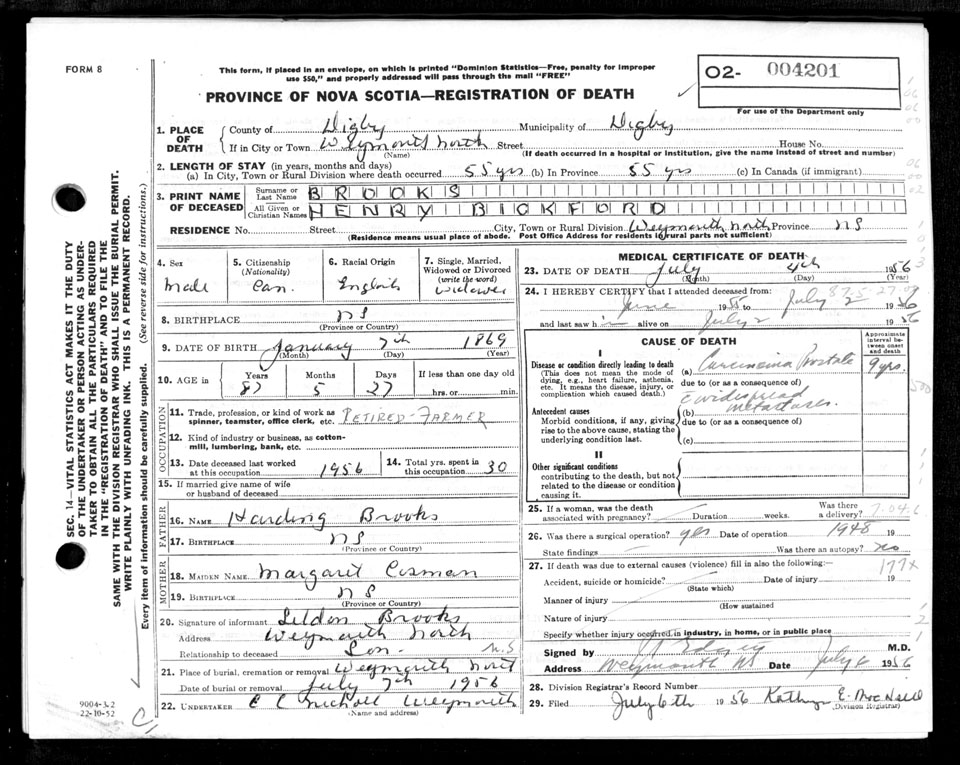 FORM 8
This form, if placed in an envelope, on which is printed "Dominion Statistics—Free, penalty for improper
use $50," and properly addressed will pass through the mail "FREE"
PROVINCE OF NOVA SCOTIA—REGISTRATION OF DEATH
O2- 004201
For use of the Department only
1. PLACE OF DEATH
County of Digby Municipality of Digby
If in City or Town Weymouth North Street House No.
(Name) (If death occurred in a hospital or institution, give the name instead of street and number)
2. LENGTH OF STAY (in years, months and days)
(a) In City, Town or Rural Division where death occurred 55 yrs (b) In Province 55 yrs (c) In Canada (if immigrant)
3. PRINT NAME OF DECEASED
Surname or Last Name BROOKS
All Given or Christian Names HENRY BICKFORD
RESIDENCE No. Street City, Town or Rural Division Weymouth North Province NS
(Residence means usual place of abode. Post Office Address for residents in rural parts not sufficient)
4. Sex
Male
5. Citizenship
(Nationality)
Can.
6. Racial Origin
English
7. Single, Married,
Widowed or Divorced
(write the word)
Widower
8. BIRTHPLACE NS
(Province or Country)
9. DATE OF BIRTH January 7th 1869
(Month) (Day) (Year)
10. AGE in
Years Months Days If less than one day old
87 5 27 hrs. or min.
OCCUPATION
11. Trade, profession, or kind of work as
spinner, teamster, office clerk, etc. RETIRED-FARMER
12. Kind of industry or business, as cotton-
mill, lumbering, bank, etc.
13. Date deceased last worked
at this occupation 1956
14. Total yrs. spent in
this occupation 30
15. If married give name of wife
or husband of deceased
FATHER
16. NAME Harding Brooks
17. BIRTHPLACE NS
(Province or Country)
MOTHER
18. MAIDEN NAME Margaret Cosman
19. BIRTHPLACE NS
(Province or Country)
20. Signature of informant Seldon Brooks
Address Weymouth North
Relationship to deceased Son N.S
21. Place of burial, cremation or removal Weymouth North
Date of burial or removal July 7th 1956
22. UNDERTAKER Weymouth
(Name and address)
MEDICAL CERTIFICATE OF DEATH
23. DATE OF DEATH July 4th 1956
(Month) (Day) (Year)
24. I HEREBY CERTIFY that I attended deceased from:
June 1955 to July 2 1956
and last saw him alive on July 2 1956
CAUSE OF DEATH
Approximate
interval be-
tween onset
and death
I
Disease or condition directly leading to death
(This does not mean the mode of
dying, e.g., heart failure, asthenia,
etc. It means the disease, injury, or
complication which caused death.)
(a) Carcinoma Prostate 9 yrs.
due to (or as a consequence of)
Antecedent causes
Morbid conditions, if any, giving
rise to the above cause, stating the
underlying condition last.
(b) c widespread metastases.
due to (or as a consequence of)
(c)
II
Other significant conditions
contributing to the death, but not
related to the disease or condition
causing it.
25. If a woman, was the death
associated with pregnancy? Duration weeks. Was there
a delivery?
26. Was there a surgical operation? yes Date of operation 1948 19
State findings Was there an autopsy? no
27. If death was due to external causes (violence) fill in also the following: 177X
Accident, suicide or homicide? Date of injury 19
(State which)
Manner of injury
(How sustained
Nature of injury
Specify whether injury occurred in industry, in home, or in public place
Signed by M.D.
Address Weymouth NS Date July 6 1956
28. Division Registrar's Record Number
29. Filed July 6th 1956 Kathryn E. MacNeill
(Division Registrar)
SEC. 14—VITAL STATISTICS ACT MAKES IT THE DUTY
OF THE UNDERTAKER OR PERSON ACTING AS UNDER-
TAKER TO OBTAIN ALL THE PARTICULARS REQUIRED
IN THE "REGISTRATION OF DEATH" AND TO FILE THE
SAME WITH THE DIVISION REGISTRAR WHO SHALL ISSUE THE BURIAL PERMIT.
WRITE PLAINLY WITH UNFADING INK. THIS IS A PERMANENT RECORD.
Every item of information should be carefully supplied. (See reverse side for instructions.)
9004-3.2
22-10-52